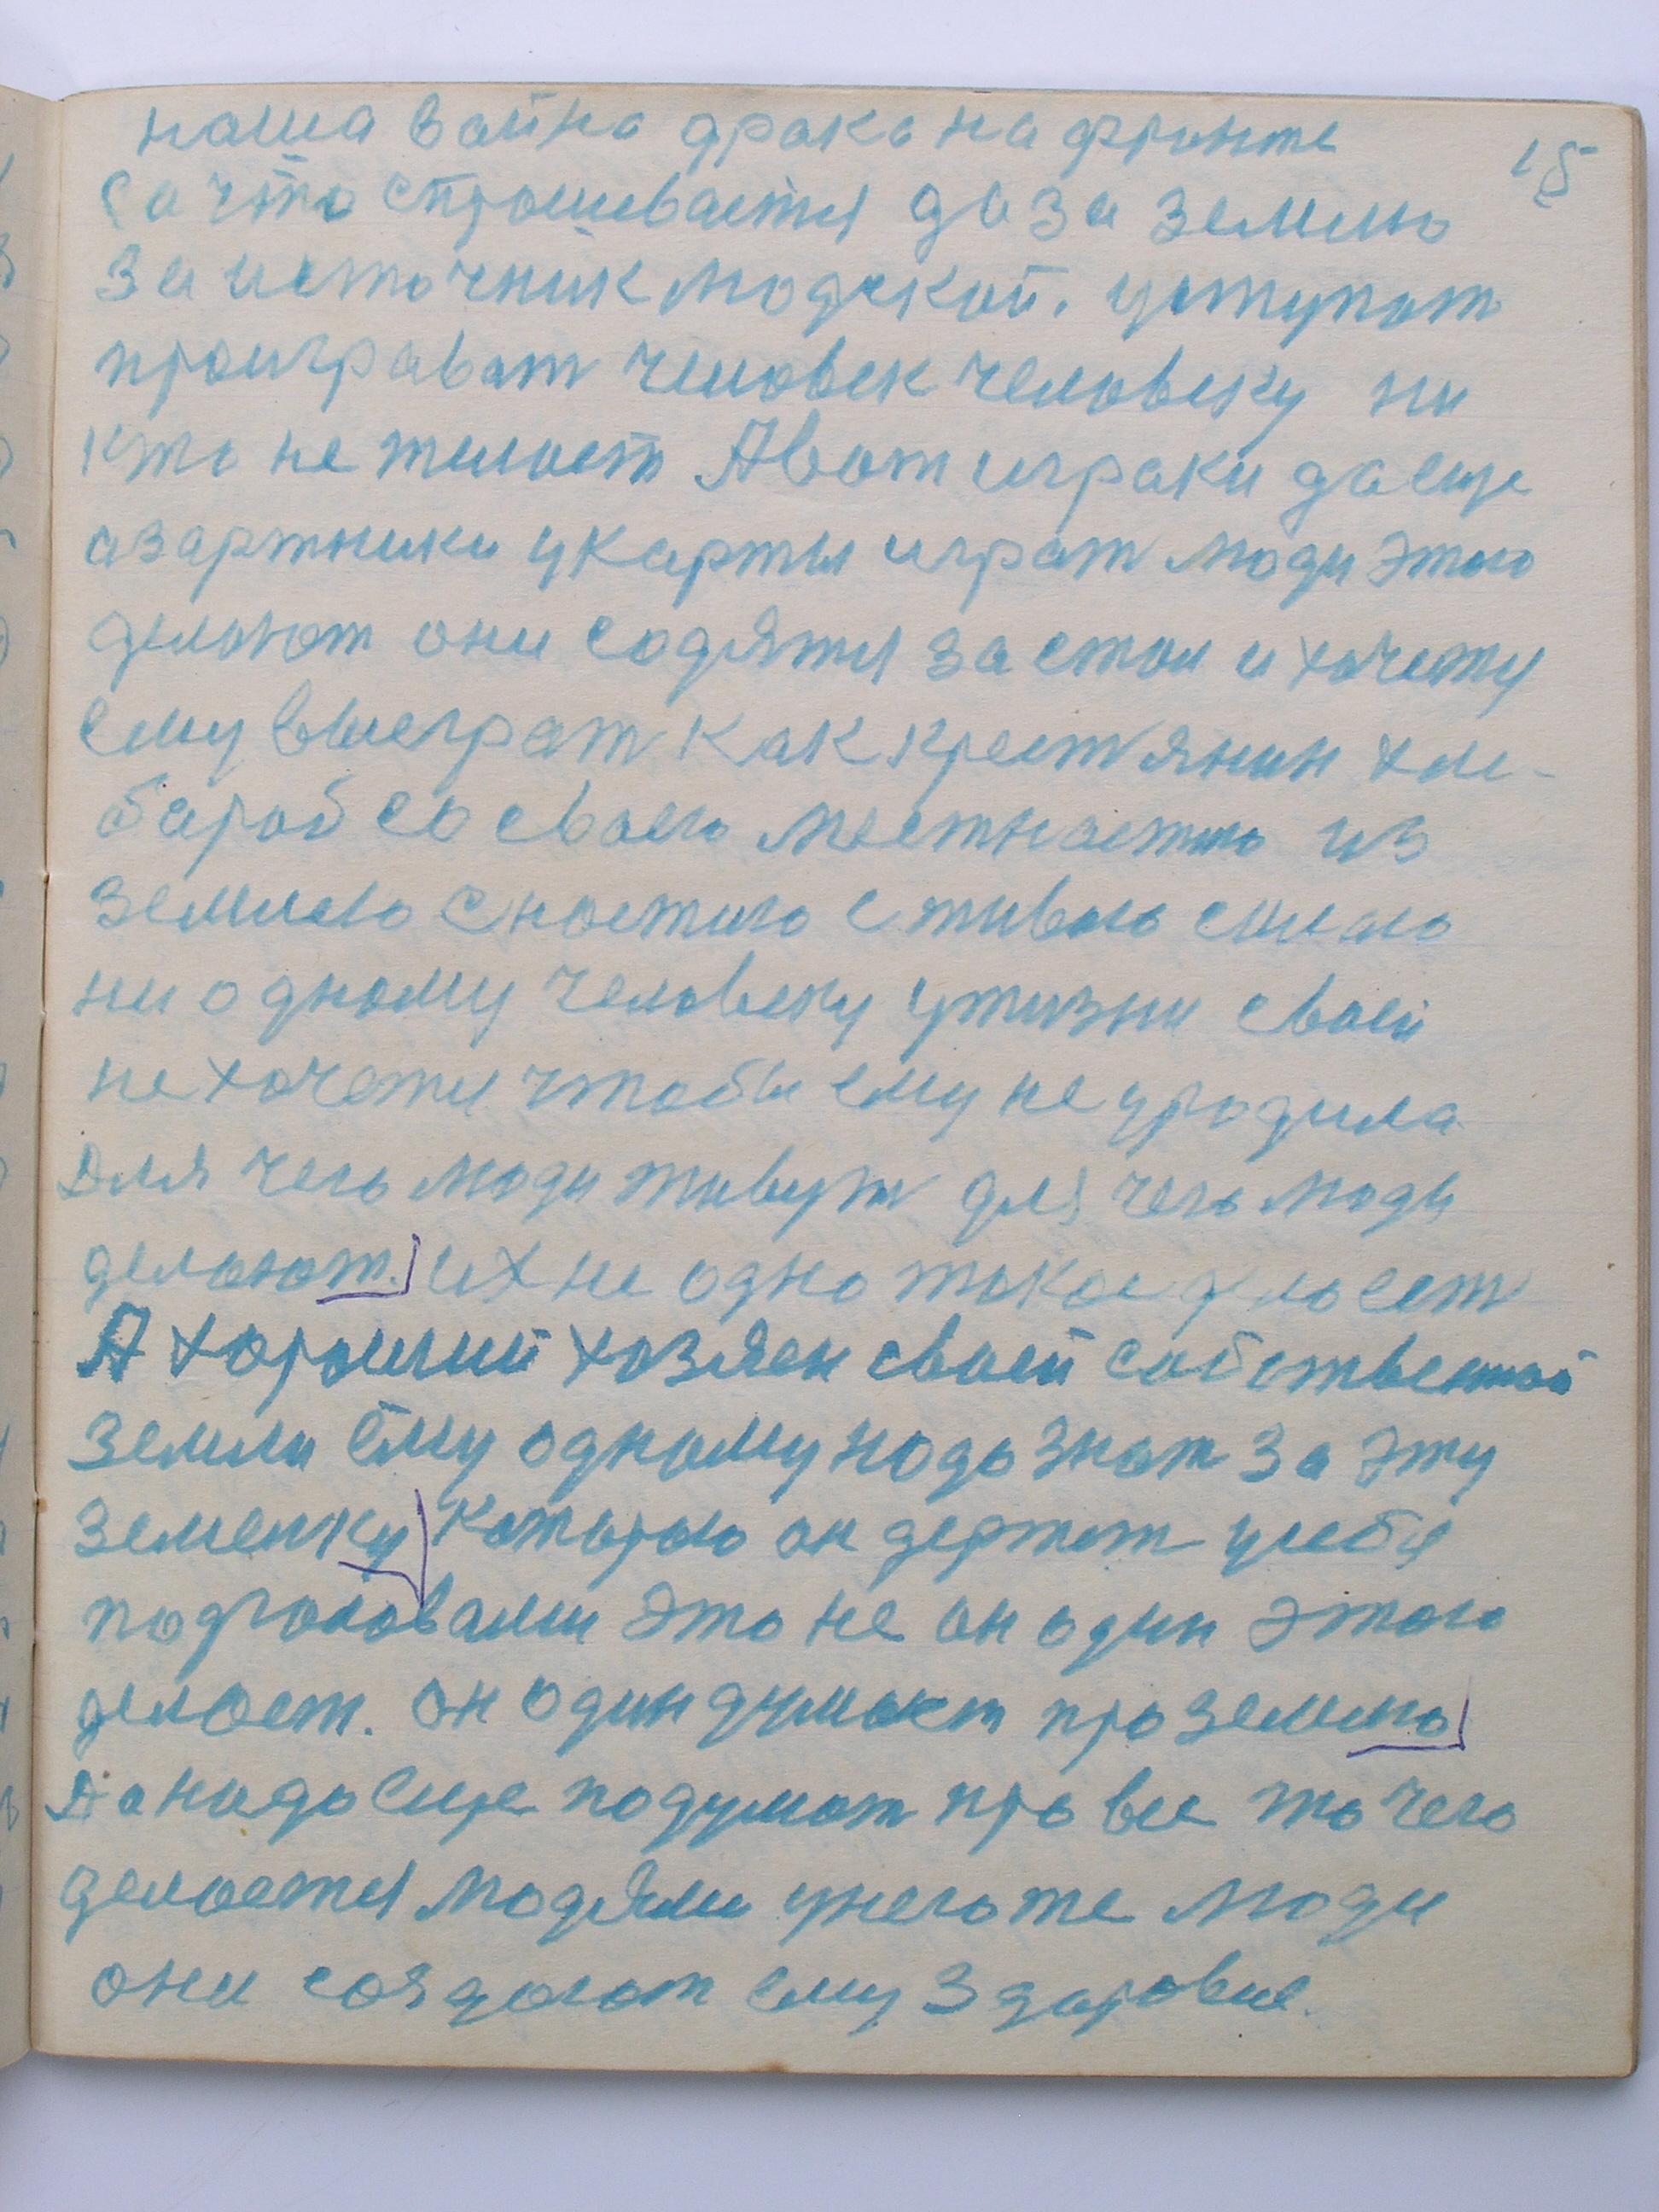 15
наша война драка на фронте
за что спрошивается да за землю
за источник людской. уступат
проиграват человек человеку ни
кто не желает А вот играки да еще
азартники у карты играт люди этого
делают они содятся за стол и хочется
ему выеграт как крестянин хле-
бароб со своею местностию из
землею с ностию с живою силою
ни одному человеку у жизни своей
не хочется чтобы ему не уродила
Для чего люди живут для чего люди
делают. их не одно такое дело ест
А хороший хозяен своей собственной
земли ему одному надо знат за эту
земельку которою он держет у себя
под головами это не он один этого
делает. он один думает про землю
Да надо еще подумат про все то чего
делается людями у него же люди
они создают ему здоровие.